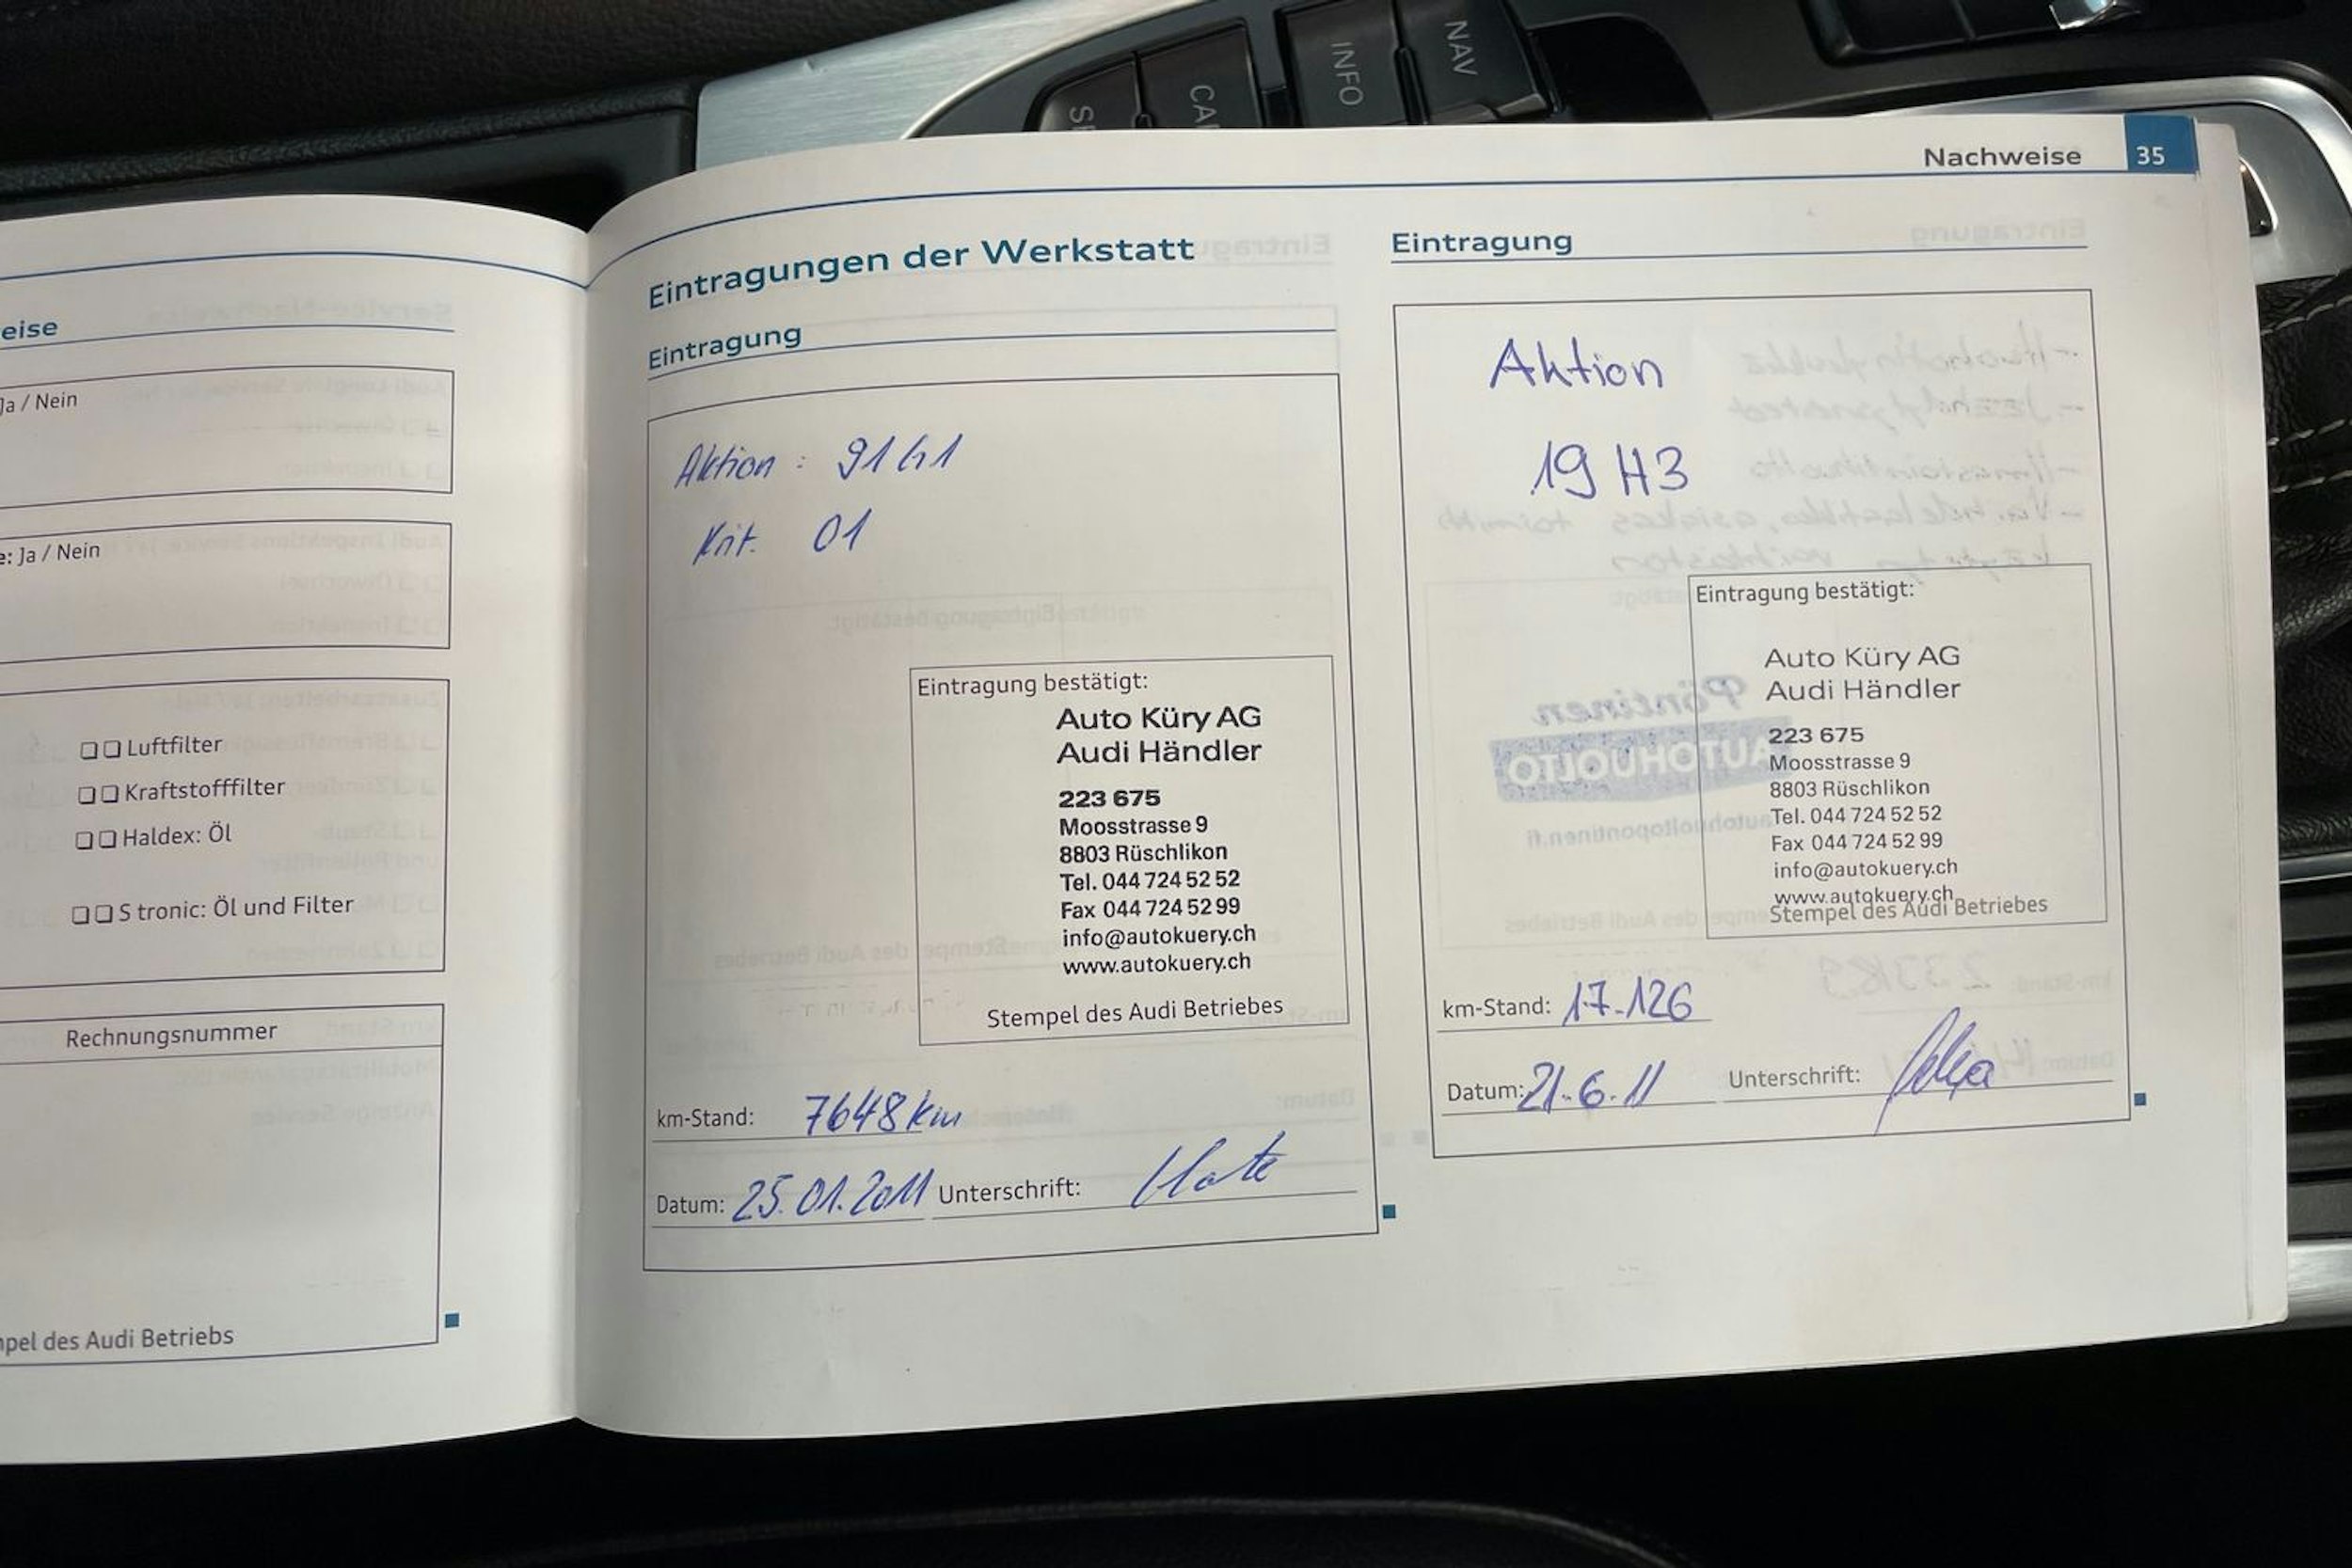 SE
CA
INFO
NAV
Nachweise 35
eise
Ja / Nein
e: Ja / Nein
Luftfilter
Kraftstofffilter
Haldex: Öl
S tronic: Öl und Filter
Rechnungsnummer
pel des Audi Betriebs
Eintragungen der Werkstatt
Eintragung
Aktion : 91G1
Krit. 01
Eintragung bestätigt:
Auto Küry AG
Audi Händler
223 675
Moosstrasse 9
8803 Rüschlikon
Tel. 044 724 52 52
Fax 044 724 52 99
info@autokuery.ch
www.autokuery.ch
Stempel des Audi Betriebes
km-Stand: 7648 km
Datum: 25.01.2011 Unterschrift:
Eintragung
Aktion
19 H3
Eintragung bestätigt:
Auto Küry AG
Audi Händler
223 675
Moosstrasse 9
8803 Rüschlikon
Tel. 044 724 52 52
Fax 044 724 52 99
info@autokuery.ch
www.autokuery.ch
Stempel des Audi Betriebes
km-Stand: 17.126
Datum: 21.6.11 Unterschrift: